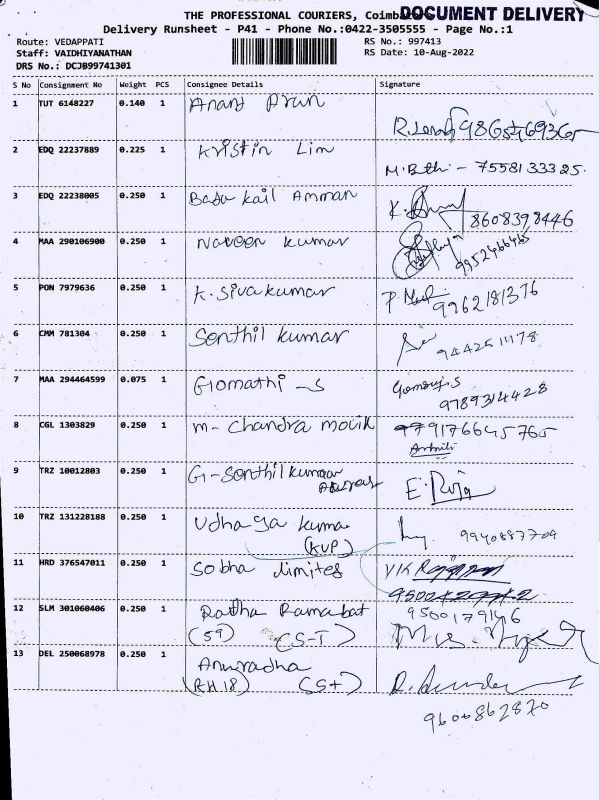 THE PROFESSIONAL COURIERS, DOCUMENT DELIVERY
Delivery Runsheet - P41 - Phone No.:0422-3505555 - Page No.:1
Route: VEDAPPATI RS No.: 997413
Staff: VAIDHIYANATHAN RS Date: 10-Aug-2022
DRS No.: DCJB99741301
S No Consignment No Weight PCS Consignee Details Signature
1 TUT 6148227 0.140 1 Anand
2 EDQ 22237889 0.225 1 Kristin Lim
7558133325
3 EDQ 22238005 0.250 1 Kail Amman
8608398446
4 MAA 290106900 0.250 1 Naveen Kumar
9952466465
5 PON 7979636 0.250 1 K. Sivakumar
9962181376
6 CMM 781304 0.250 1 Senthil Kumar
7 MAA 294464599 0.075 1 Gomathi -S
9789314428
8 CGL 1303829 0.250 1 M- Chandra
9 TRZ 10012803 0.250 1 G-Senthilkumar
E. Raja
10 TRZ 131228188 0.250 1 Udhaya Kuma
(KVP) 9940887709
11 HRD 376547011 0.250 1 Sobha Limites
12 SLM 301060406 0.250 1 Radha Ramabat 9500179146
(59) (S-T)
13 DEL 250068978 0.250 1 Anuradha
(RH.18) (S+)
9600862870